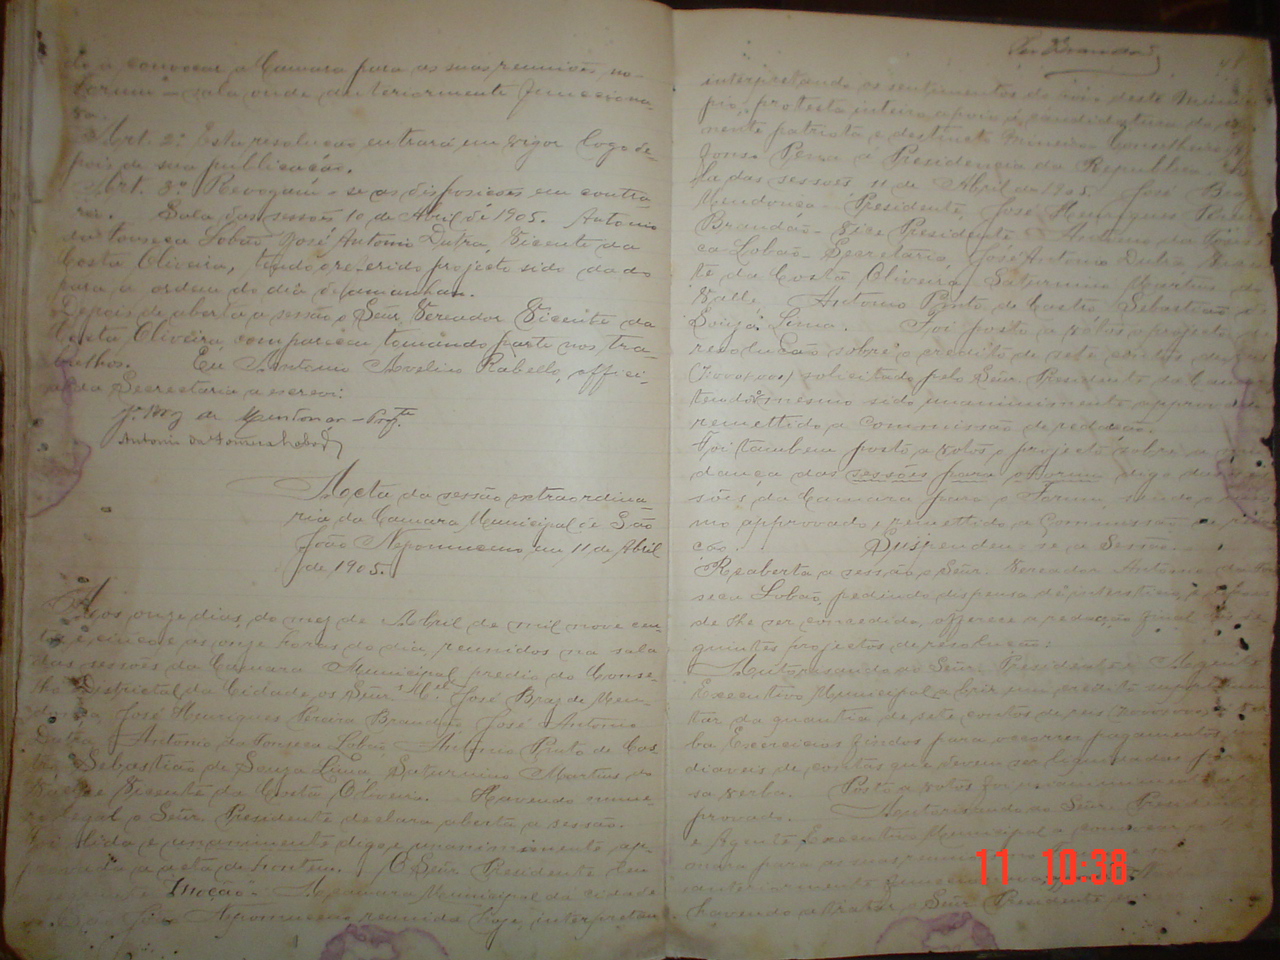 do a convocar a Camara para as suas reuniões no
Forum - sala onde anteriormente funcciona-
va.
Art. 2º Esta resolução entrará em vigor logo de-
pois de sua publicação.
Art. 3º Revogam-se as disposicões em contra-
rio. Sala das sessões 10 de Abril de 1905. Antonio
da Fonseca Lobão, José Antonio Dutra, Vicente da
Costa Oliveira, tendo o referido projecto sido dado
para a ordem do dia de amanhan.
Depois de aberta a sessão o Snr. Vereador Vicente da
Costa Oliveira, compareceu tomando parte nos tra-
balhos. Eu Antonio Avelino Rabello, offici-
al da Secretaria a escrevi:
Antonio da Fonseca Lobão
Aacta da sessão extraordina-
ria da Camara Municipal de São
João Nepomuceno, em 11 de Abril
de 1905.
Aos onze dias do mez de Abril de mil nove cen-
tos e cinco e ás onze horas do dia, reunidos na sala
das sessões da Camara Municipal, predio do Conse-
lho Districtal da Cidade, os Snrs. José Braz de Men-
donça, José Henriques Pereira Brandão, José Antonio
Dutra, Antonio da Fonseca Lobão, Antonio Pinto de Cas-
tro, Sebastião de Souza Lima, Saturnino Martins do
Valle e Vicente da Costa Oliveira. Havendo nume-
ro legal o Snr. Presidente declara aberta a sessão.
Foi lida e unanimente digo e unanimemente ap-
provada a acta da hontem. O Snr. Presidente
Moção - A Camara Municipal da cidade
de São João Nepomuceno reunida hoje, interpretan
Brandão
interpretando os sentimentos do deste Munici-
pio, protesta inteiro apoio á candidatura do
nente patriota e destincto Mineiro Conselheiro Af-
fonso Penna á Presidencia da Republica. Sa-
la das sessões 11 de Abril de 1905. José Braz
Mendonça - Presidente, José Henriques Pereira
Brandão - Vice Presidente Antonio da Fonse-
ca Lobão - Secretario, José Antonio Dutra, Vicen-
te da Costa Oliveira, Saturnino Martins do
Valle Antonio Pinto de Castro Sebastião de
Souza Lima. Foi posto a votos o projecto de
resolução sobre o credito de sete contos de reis
(7:000$000) solicitado pelo Snr. Presidente da Camara
tendo o mesmo sido unanimemente approvado
remettido a commissão de redacção.
Foi tambem posto a votos o projecto sobre a mu-
dança das sessões para o Forum digo das ses-
sões da Camara para o Forum, sendo o mes-
mo approvado e remettido a Commissão de redac-
ção. Suspendeu-se a Sessão.
Reaberta a sessão o Snr. Vereador Antonio da Fon-
seca Lobão, pedindo dispensa de intersticio,
de lhe ser concedido, offerece a redacção final dos se-
guintes projectos de resolução:
Autorisando ao Snr. Presidente e Agente
Executivo Municipal a abrir um credito supplemen-
tar da quantia de sete contos de reis (7:000$000) á ver-
ba Exercicios findos para occorrer pagamentos
diaveis de contas que devem ser liquidadas por es-
sa verba. Posto a votos foi unanimemente ap-
provado. Autorisando ao Snr. Presidente
e Agente Executivo Municipal a convocar a Ca-
mara para as suas reuniões no Forum
anteriormente funccionava.
havendo a tratar, o Snr. Presidente
11 10:38